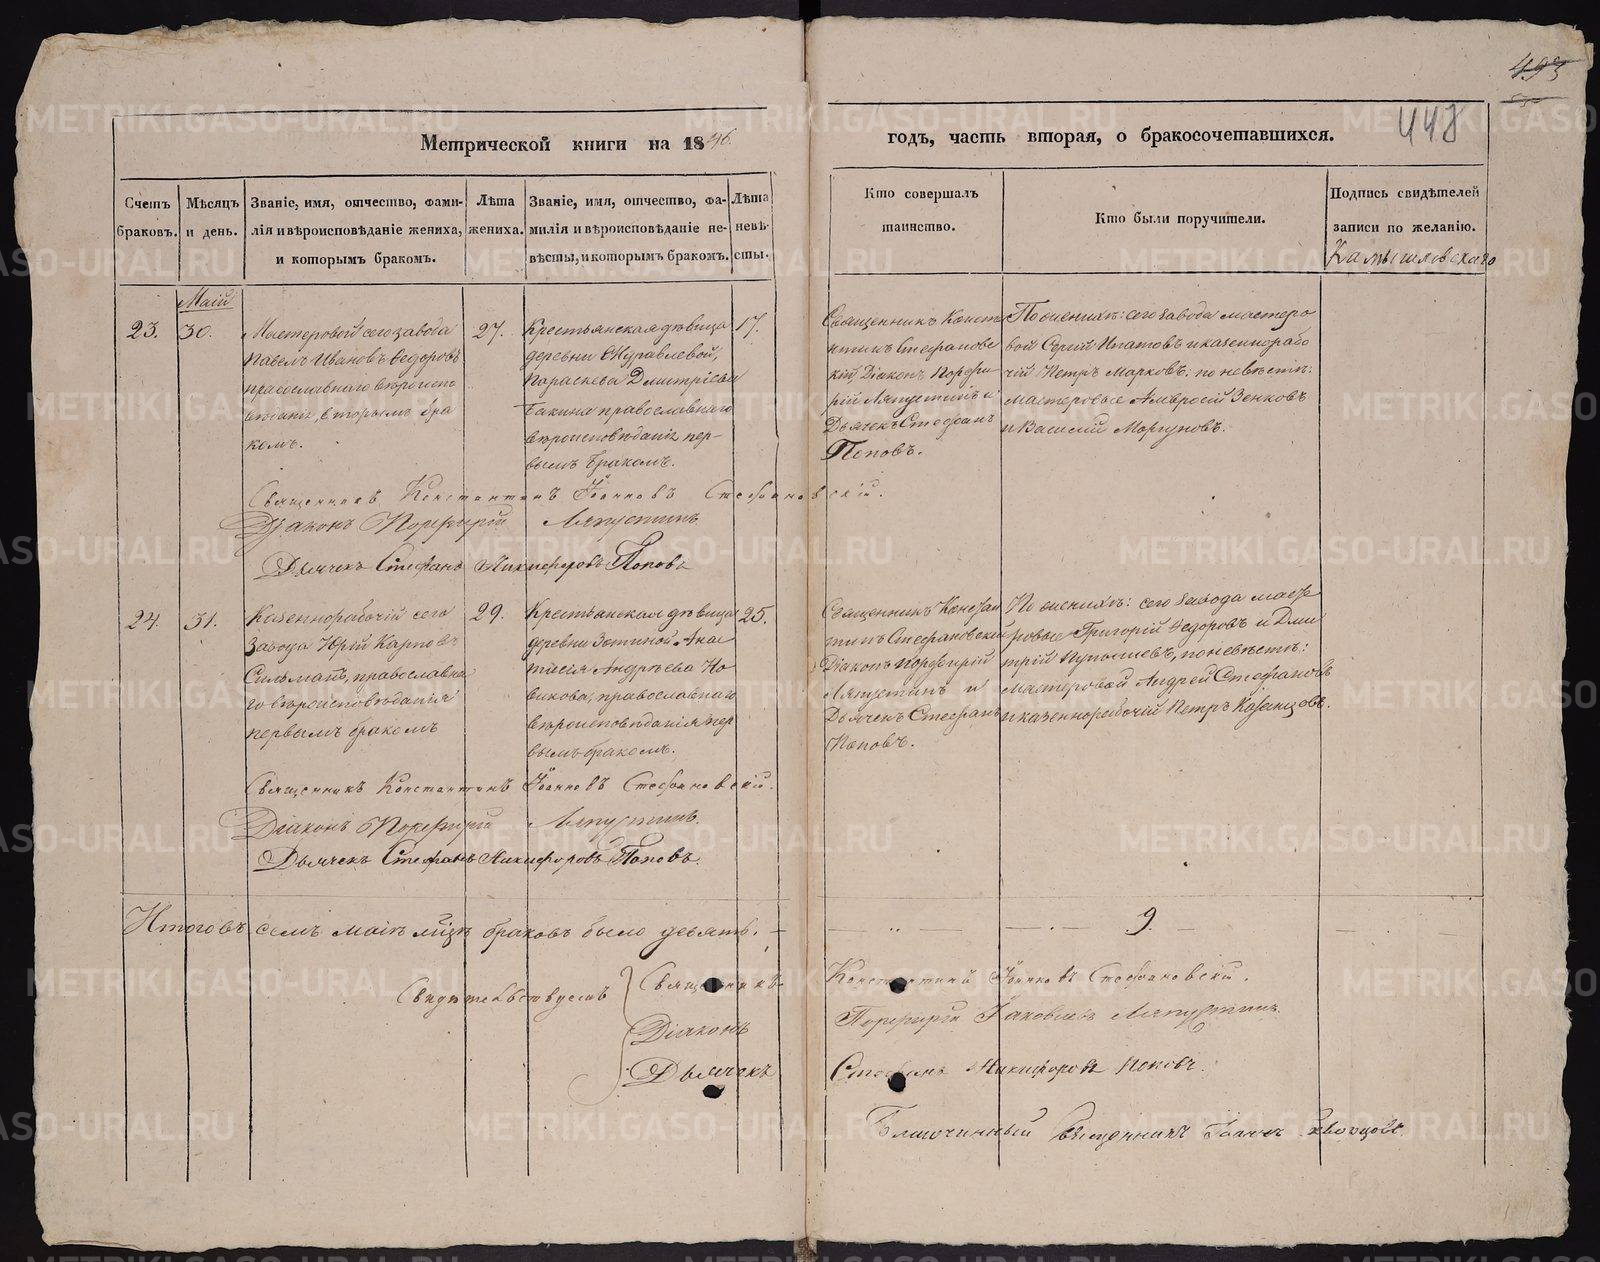 493
448
Метрической книги на 1846.
годъ, часть вторая, о бракосочетавшихся.
Счетъ браковъ.
Мѣсяцъ и день.
Званіе, имя, отчество, фами-
лія и вѣроисповѣданіе жениха,
и которымъ бракомъ.
Лѣта жениха.
Званіе, имя, отчество, фа-
милія и вѣроисповѣданіе не-
вѣсты, и которымъ бракомъ.
Лѣта невѣ-
сты.
Кто совершалъ
таинство.
Кто были поручители.
Подпись свидѣтелей
записи по желанію.
Камышловскаго
Маій
23.
30.
Мастеровой сего завода
Павелъ Ивановъ Ѳедоровъ
православнаго вѣроиспо
вѣданія, вторымъ бра
комъ.
27.
Крестьянская дѣвица
деревни Журавлевой,
Параскева Дмитріева
Бакина православнаго
вѣроисповѣданія пер-
вымъ бракомъ.
17.
Священникъ Конста
нтинъ Стефановс
кій, Діаконъ Порфи
рій Ляпустинъ и
Дьячекъ Стефанъ
Поповъ.
По женихѣ: сего завода мастеро
вой Сергій Ипатовъ и казеннорабо
чій Петръ Марковъ: по невѣстѣ:
мастеровые Амвросій Зенковъ
и Василій Моргуновъ.
Священникъ Константинъ Іоанновъ Стефановскій.
Діаконъ Порфирій Ляпустинъ
Дьячекъ Стефанъ Никифоровъ Поповъ
24.
31.
Казеннорабочій сего
завода Юрій Карповъ
православна
го вѣроисповѣданія
первымъ бракомъ
29.
Крестьянская дѣвица
деревни Зотиной Анас
тасія Андрѣева Но
викова, православнаго
вѣроисповѣданія пер
вымъ бракомъ.
25.
Священникъ Констан
тинъ Стефановскій
Діаконъ Порфирій
Ляпустинъ и
Дьячекъ Стефанъ
Поповъ.
По женихѣ: сего завода масте
ровые Григорій Ѳедоровъ и Дми
трій по невѣстѣ:
мастеровой Андрей Стефановъ
и казеннорабочій Петръ Казанцовъ.
Священникъ Константинъ Іоанновъ Стефановскій.
Діаконъ Порфирій Ляпустинъ.
Дьячекъ Стефанъ Никифоровъ Поповъ.
Итого въ семъ маіѣ мцѣ браковъ было девять. 9.
Свидѣтельствуемъ
Священникъ Константинъ Іоанновъ Стефановскій.
Діаконъ Порфирій Іаковлевъ Ляпустинъ.
Дьячекъ Стефанъ Никифоровъ Поповъ.
Благочинный Священникъ Іоаннъ
METRIKI.GASO-URAL.RU